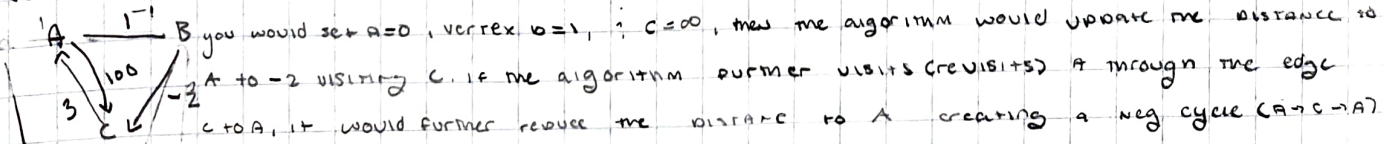 A 1⁻¹ B you would set A=0, verrex b=1, ; C=∞, then the algorithm would update the distance to
100 -2 A to -2 visiting C. if the algorithm purther visits (revisits) A through the edge
3 C C to A, it would further reduce the distance to A creating a neg cycle (A→C→A)